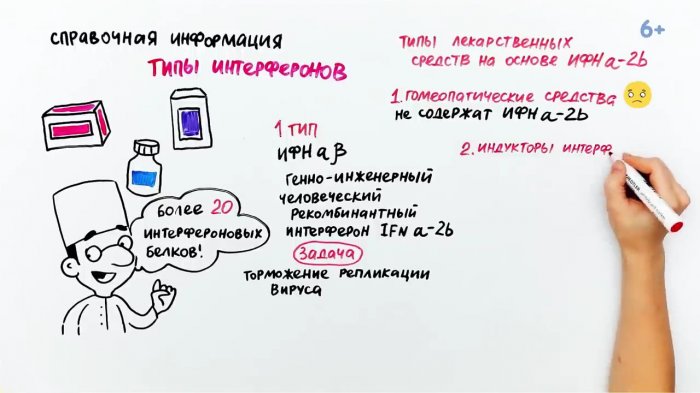 6+
СПРАВОЧНАЯ ИНФОРМАЦИЯ
ТИПЫ ИНТЕРФЕРОНОВ
БОЛЕЕ 20
ИНТЕРФЕРОНОВЫХ
БЕЛКОВ!
1 ТИП
ИФН α β
ГЕННО-ИНЖЕНЕРНЫЙ
ЧЕЛОВЕЧЕСКИЙ
РЕКОМБИНАНТНЫЙ
ИНТЕРФЕРОН IFN α-2b
ЗАДАЧА
ТОРМОЖЕНИЕ РЕПЛИКАЦИИ
ВИРУСА
ТИПЫ ЛЕКАРСТВЕННЫХ
СРЕДСТВ НА ОСНОВЕ ИФН α-2b
1. ГОМЕОПАТИЧЕСКИЕ СРЕДСТВА
НЕ СОДЕРЖАТ ИФН α-2b
2. ИНДУКТОРЫ ИНТЕРФ